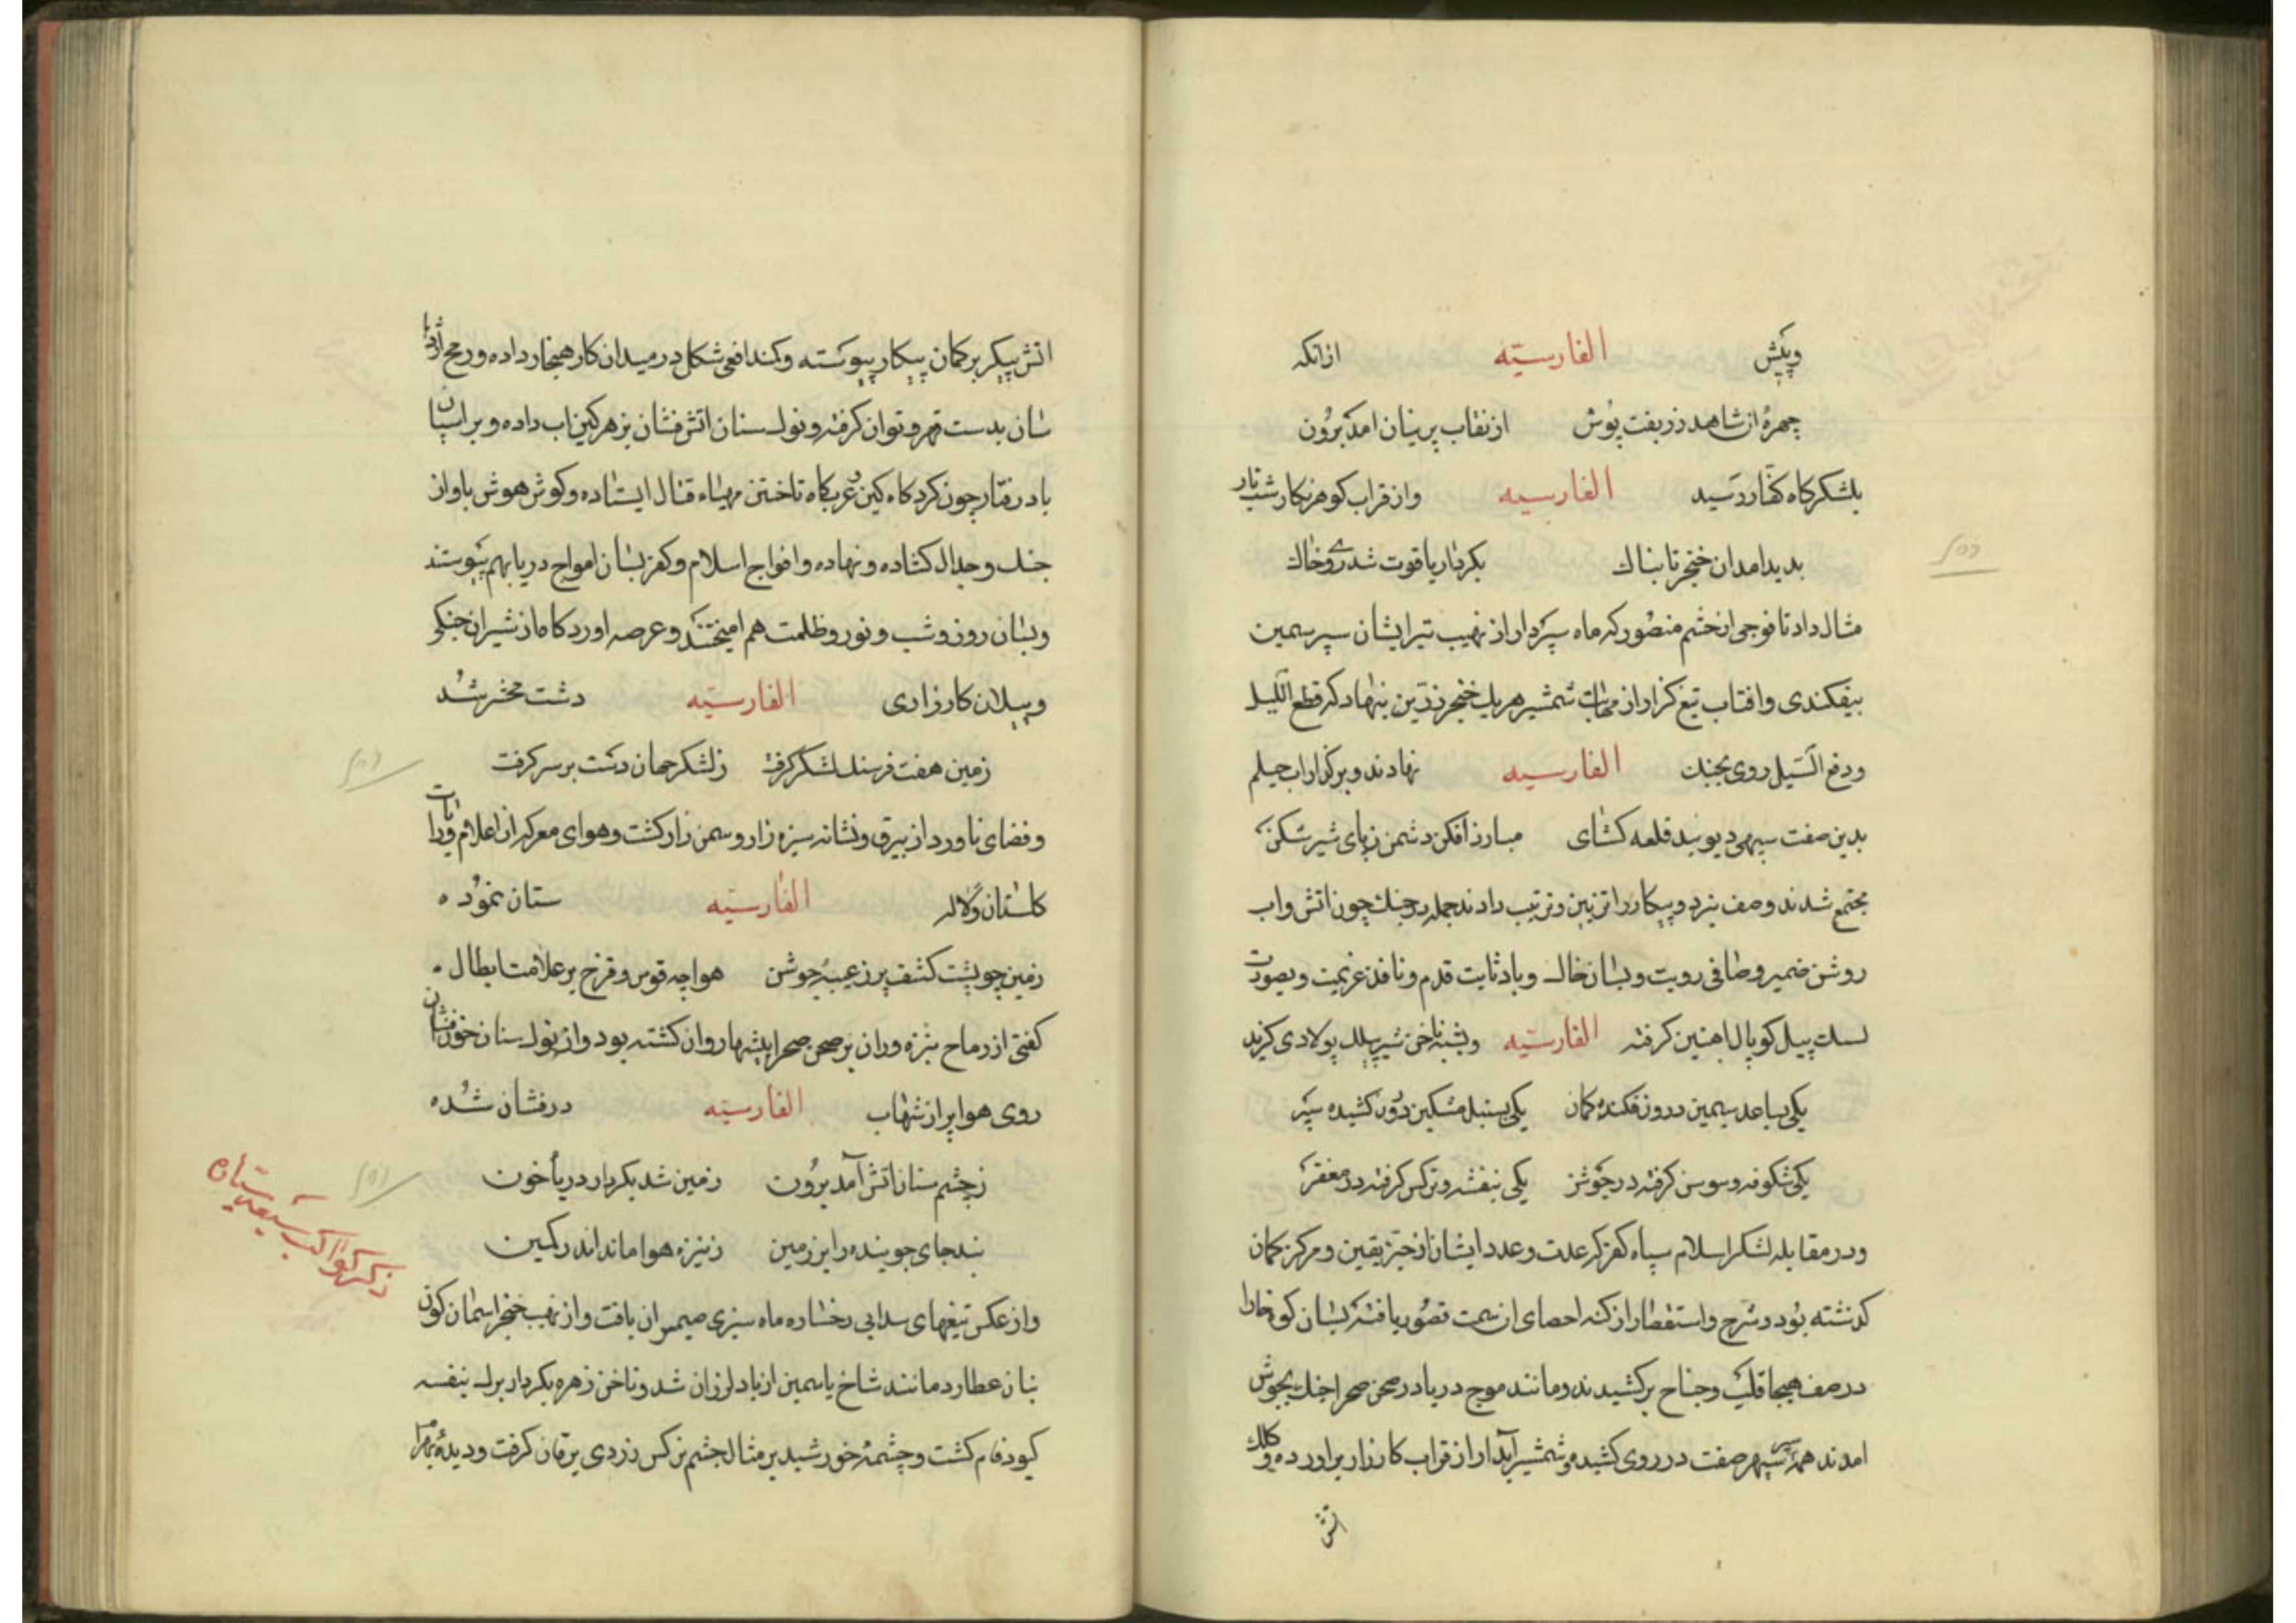 وپیش الفارسیته ازانکه
چهره‌ٔ ان شاهد زربفت پوش از نقاب پرنیان امد برون
بلشکرکاه کفار رسید الفارسیه واز قراب کوهرنکار شب تار
بدید امد ان خنجر تابناك بکردار یاقوت شد روی خاك
مثال داد تا فوجی از حشم منصور که ماه سپردار از نهیب تیر ایشان سپر سیمین
بیفکندی وافتاب تیغ کزار از مهابت شمشیر هریك خنجر زرین بنهاد که قطع اللیل
ودفع السیل روی بجنك الفارسیه نهادند و برکزار اب جیلم
بدین صفت سپهی دیوبند قلعه کشای مبارز افکن دشمن ربای شیرشکن
مجتمع شدند وصف نبرد و پیکار را تزیین و ترتیب دادند جمله در جنك چون اتش و اب
روشن ضمیر و صافی رویت و بسان خاك وباد ثابت قدم و نافذ عزیمت و بصورت
پیل کوپال اهنین کرفته الفارسیته شیر پلك پولادی کزید
یکی بساعد سیمین درون فکنده کمان یکی بسنبل مشکین درون کشیده سپر
یکی شکوفه و سوسن کرفته در جوشن یکی بنفشه و نرکس کرفته در مغفر
ودر مقابله لشکر اسلام سپاه کفر که عدت وعدد ایشان از حیز یقین و مرکز کمان
کذشته بود و شرح و استقصا از کنه احصای ان سمت قصور یافته بسان کوه خارا
در صف هیجا قلب وجناح برکشیدند ومانند موج دریا در صحن صحرا جنك بجوش
امدند همه سپر سپهر صفت در روی کشیده و شمشیر آبدار از قراب کارزار براورده و کلك
اتش
اتش پیکر بر کمان پیکار پیوسته وکمند افعی شکل در میدان کار هنجار داده و رمح اژدها
سان بدست قهر و توان کرفته و نوك سنان اتش فشان بزهر کین اب داده و بر اسپان
باد رفتار چون کرد کاه کین عزیکاه تاختن مهیاء قتال ایستاده و کوش هوش باواز
جنك وجدال کشاده و نهاده وافواج اسلام و کفر بسان امواج دریا بهم پیوستند
وبسان روز وشب و نور و ظلمت هم امیختند و عرصه اوردکاه از شیران جنکی
وپیلان کارزاری الفارسیته دشت محشر شد
زمین هفت فرسنك لشکر کرفت ز لشکر جهان دست بر سر کرفت
وفضای ناورد از بیرق ونشانه سبزه زار وسمن زار کشت وهوای معرکه از اعلام ورایات
کلستان و لاله الفارسیته ستان نموده
زمین چو پشت کشف پر ز عیبه جوشن هوا چه قوس و قزح پر علامت ابطال
کفتی از رماح نیزه وران بر صحن صحرا بیشها روان کشته بود و از نوك سنان خون فشان
روی هوا پر از شهاب الفارسیته درفشان شده
ز چشم سنان اتش آمد برون زمین شد بکردار دریا خون
بند جای جوینده را بر زمین ز نیزه هوا ماند اندر کمین
واز عکس تیغهای سدابی رخساره ماه سبزی یافت واز نهیب خنجر اسمان کون
بنان عطارد مانند شاخ یاسمین از باد لرزان شد و ناخن زهره بکردار برك بنفشه
کبود فام کشت و چشمه خورشید بر مثال چشم نرکس زردی یرقان کرفت و دیده بهرام
ذکر کواکب